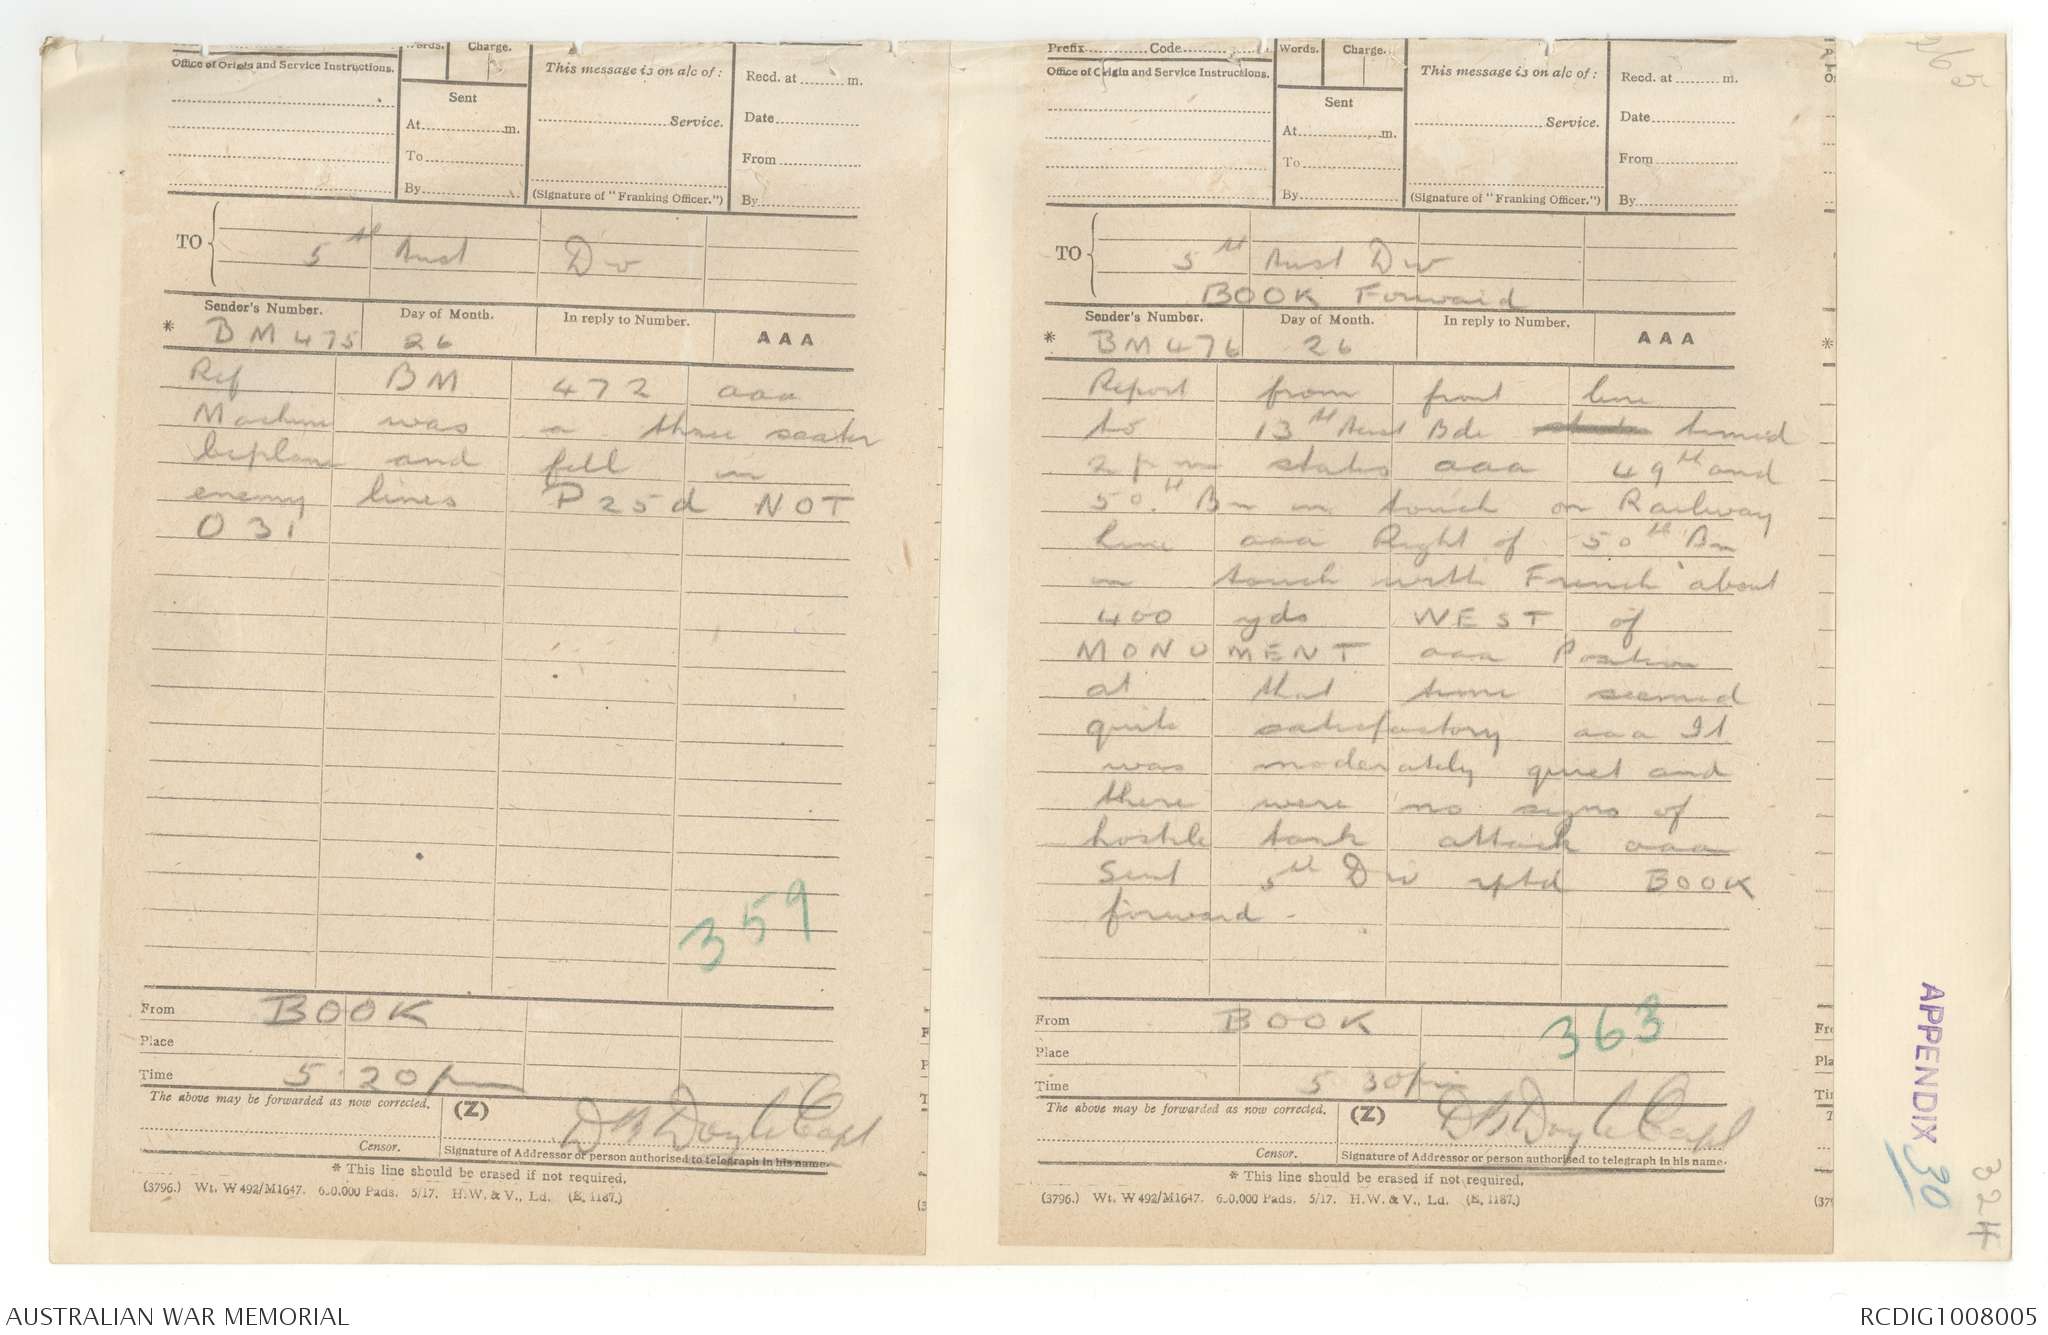 Words.
Charge.
Office of Origin and Service Instructions.
Sent
At..................m.
To
By
This message is on a/c of:
Service.
(Signature of "Franking Officer.")
Recd. at .......... m.
Date
From
By
TO
5th Aust Div
Sender's Number.
Day of Month.
In reply to Number.
AAA
* BM 475 26
Ref BM 472 aaa
Machine was a three seater
biplane and fell in
enemy lines P25d NOT
O31
359
From BOOK
Place
Time 5.20 pm
The above may be forwarded as now corrected.
(Z)
D B Doyle Capt
Censor.
Signature of Addressor or person authorised to telegraph in his name.
* This line should be erased if not required.
(3796.) Wt. W 492/M1647. 600,000 Pads. 5/17. H.W. & V., Ld. (E. 1187.)
Prefix............Code............
Words.
Charge.
Office of Origin and Service Instructions.
Sent
At..................m.
To
By
This message is on a/c of:
Service.
(Signature of "Franking Officer.")
Recd. at .......... m.
Date
From
By
TO
5th Aust Div
BOOK Forward
Sender's Number.
Day of Month.
In reply to Number.
AAA
* BM 476 26
Report from front line
to 13th Aust Bde timed
2 pm states aaa 49th and
50th Bn in touch on Railway
line aaa Right of 50th Bn
in touch with French about
400 yds WEST of
MONUMENT aaa Position
at that time seemed
quite satisfactory aaa It
was moderately quiet and
there were no signs of
hostile tank attack aaa
Sent 5th Div rptd BOOK
forward -
From BOOK
363
Place
Time 5 30 pm
The above may be forwarded as now corrected.
(Z)
D B Doyle Capt
Censor.
Signature of Addressor or person authorised to telegraph in his name.
* This line should be erased if not required.
(3796.) Wt. W 492/M1647. 600,000 Pads. 5/17. H.W. & V., Ld. (E. 1187.)
APPENDIX 30
AUSTRALIAN WAR MEMORIAL
RCDIG1008005